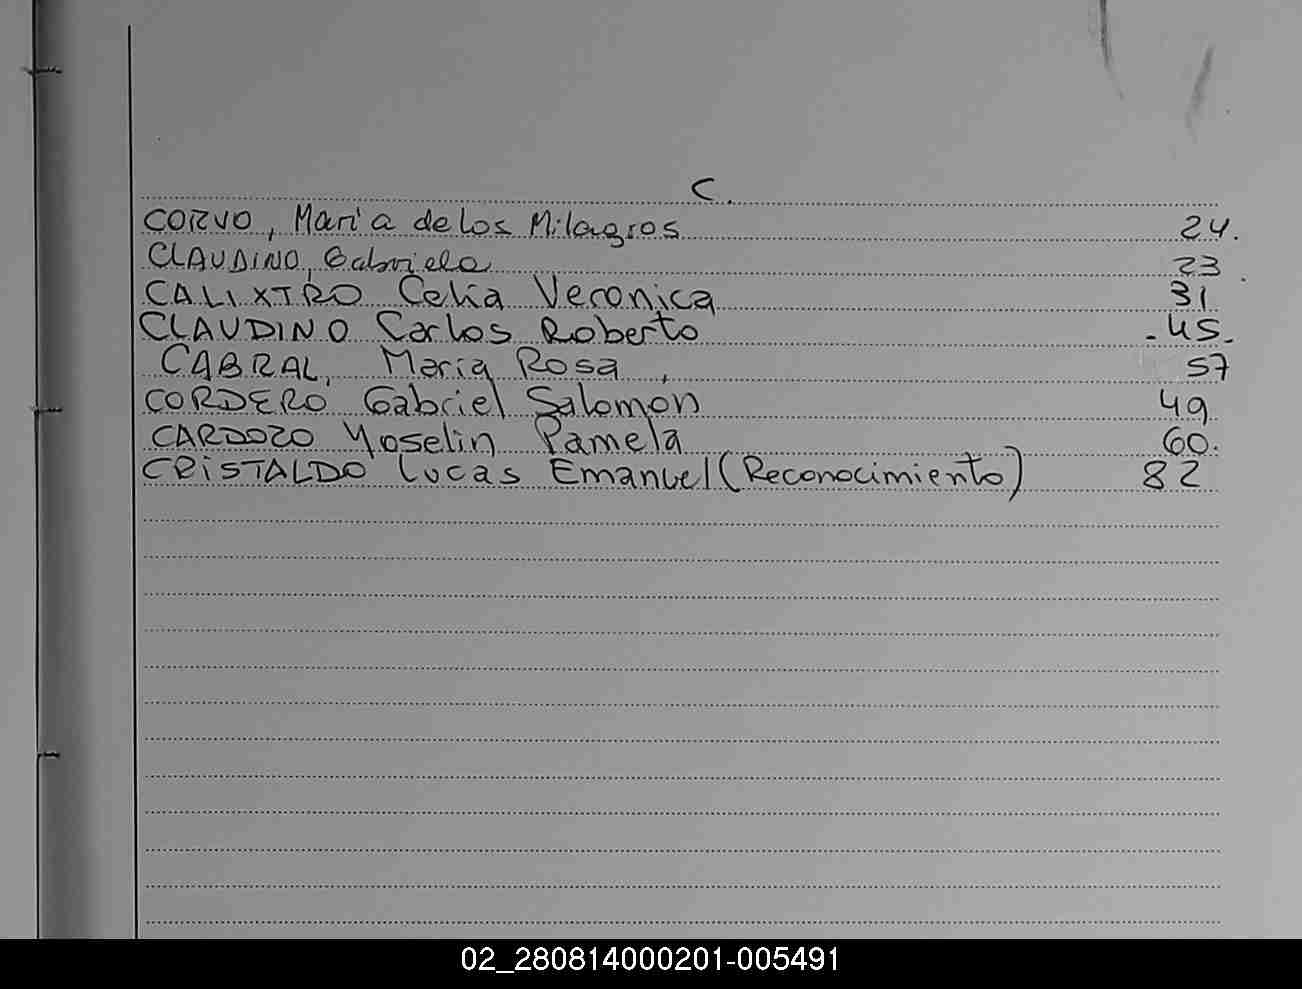 C.
CORVO, Maria de los Milagros 24.
CLAUDINO, Gabriela 23
CALIXTRO Celia Veronica 31
CLAUDINO Carlos Roberto -45-
CABRAL, Maria Rosa, 57
CORDERO Gabriel Salomon 49
CARDOZO Yoselin Pamela 60.
CRISTALDO Lucas Emanuel (Reconocimiento) 82
02_280814000201-005491